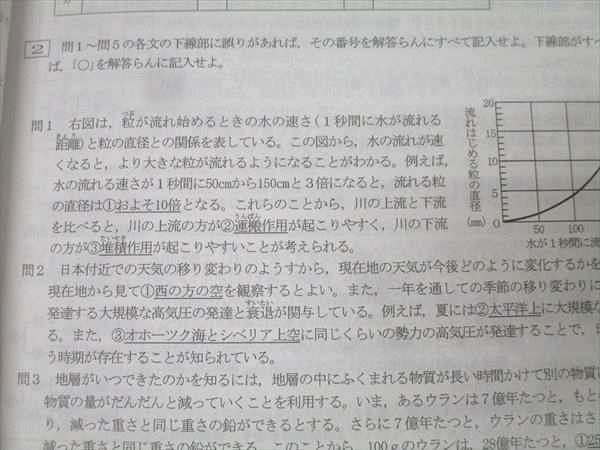 2 問1～問5の各文の下線部に誤りがあれば，その番号を解答らんにすべて記入せよ。下線部がすべ
ば，「○」を解答らんに記入せよ。
問1 右図は，粒が流れ始めるときの水の速さ(1秒間に水が流れる
距離)と粒の直径との関係を表している。この図から，水の流れが速
くなると，より大きな粒が流れるようになることがわかる。例えば，
水の流れる速さが1秒間に50cmから150cmと3倍になると，流れる粒
の直径は①およそ10倍となる。これらのことから，川の上流と下流
を比べると，川の上流の方が②運搬作用が起こりやすく，川の下流
の方が③堆積作用が起こりやすいことが考えられる。
流れはじめる粒の直径
(mm)
20
15
10
5
0
50 100
水が1秒間に流
問2 日本付近での天気の移り変わりのようすから，現在地の天気が今後どのように変化するかを
現在地から見て①西の方の空を観察するとよい。また，一年を通しての季節の移り変わりに
発達する大規模な高気圧の発達と衰退が関与している。例えば，夏には②太平洋上に大規模な
る。また，③オホーツク海とシベリア上空に同じくらいの勢力の高気圧が発達することで，
う時期が存在することが知られている。
問3 地層がいつできたのかを知るには，地層の中にふくまれる物質が長い時間かけて別の物質
物質の量がだんだんと減っていくことを利用する。いま，あるウランは7億年たつと，もと
り，減った重さと同じ重さの鉛ができるとする。さらに7億年たつと，ウランの重さはさ
減った重さと同じ重さの鉛ができる。このことから，100gのウランは，28億年たつと，①25